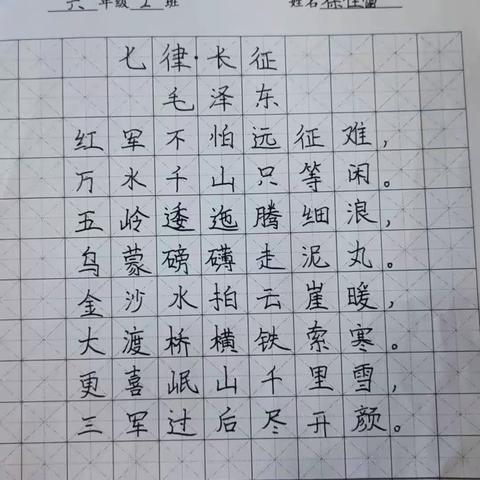 六年级2班 姓名徐佳
七律·长征
毛泽东
红军不怕远征难，
万水千山只等闲。
五岭逶迤腾细浪，
乌蒙磅礴走泥丸。
金沙水拍云崖暖，
大渡桥横铁索寒。
更喜岷山千里雪，
三军过后尽开颜。